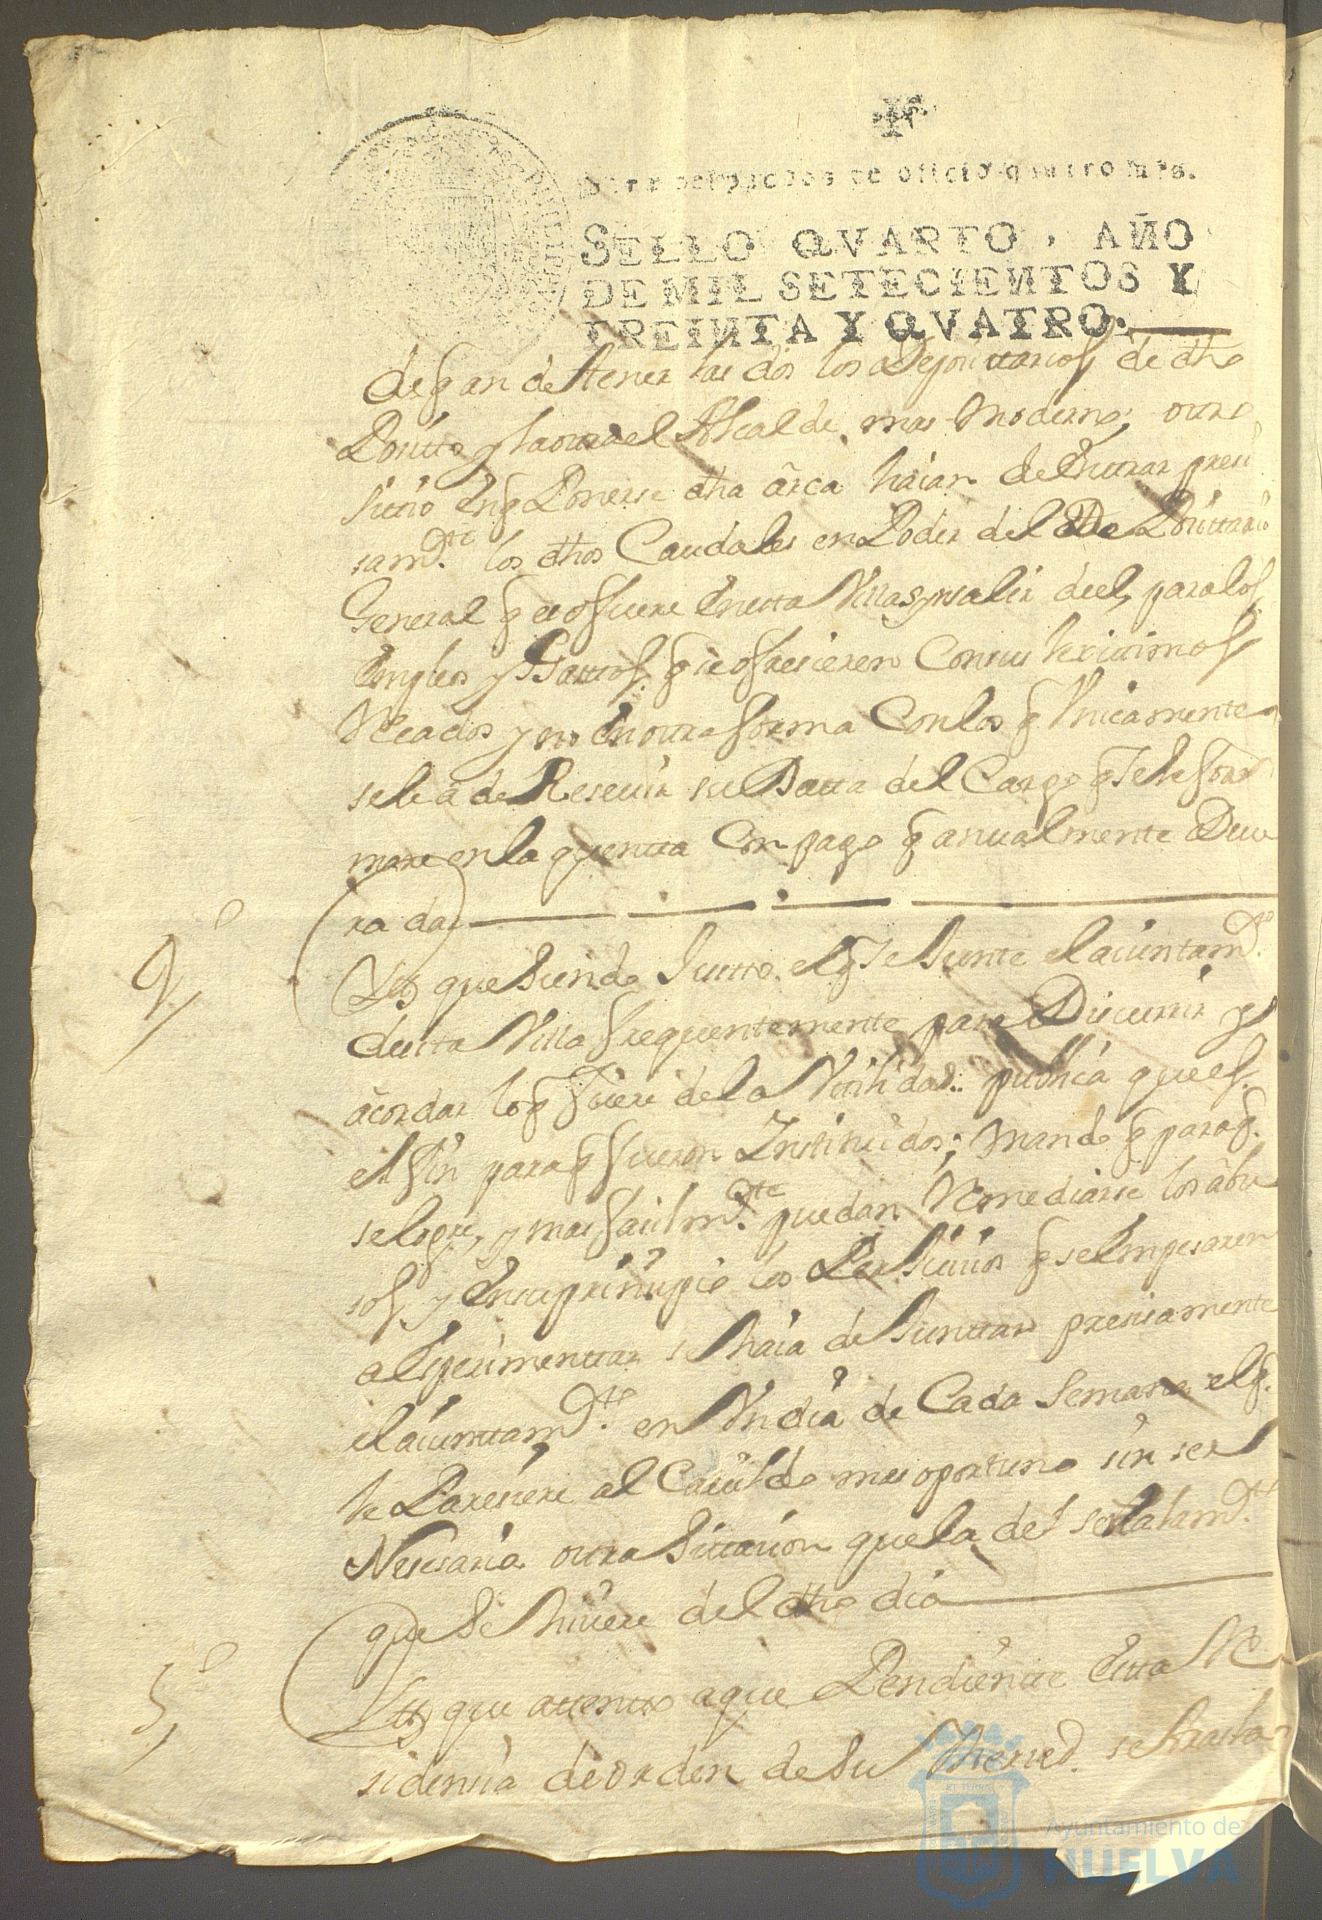 Para despachos de oficio quatro mrs.
SELLO QVARTO, AÑO
DE MIL SETECIENTOS Y
TREINTA Y QVATRO.
de tener las dos los de dho
Possito y la otra el Alcalde mas Moderno; otro
sitio Enq Ponerse dha arca haian de Entrar preci
samte los dhos Caudales en Poder del Depositario
General q fuere En esta Villa sin salir deel, para los
Empleos y Gasttos q se ofresieren Con sus lexitimos
Recados y no En otra forma Con los q Unicamente
se le a de Reseuir su Datta del Cargo q se le for
mare en la quentta Con pago q anualmente
rada
4º
Ytt que siendo Justto el q Se Junte el aiuntamto
desta Villa frequentemente para Discurrir y
acordar lo q fuere de la Vtilidad publica que es
el fin para q fueron Instituidos; Mando q para q
se logre, y mas facilmte puedan Remediarse los abu
sos y En su prinsipio los Perjuicios q se Empesaren
a Esperimenttar se haia de Junttar presisamente
el aiunttamto en Un dia de Cada Semana el q
le Paresiere al Cauildo mas oportuno sin ser
Nesesaria otra Sittacion que la del señalamto
que Se hiciere del dho dia
5º
Ytt que attentto a que Pendiente Esta Re
sidensia de orden de Su Merced se
Ayuntamiento de
HUELVA